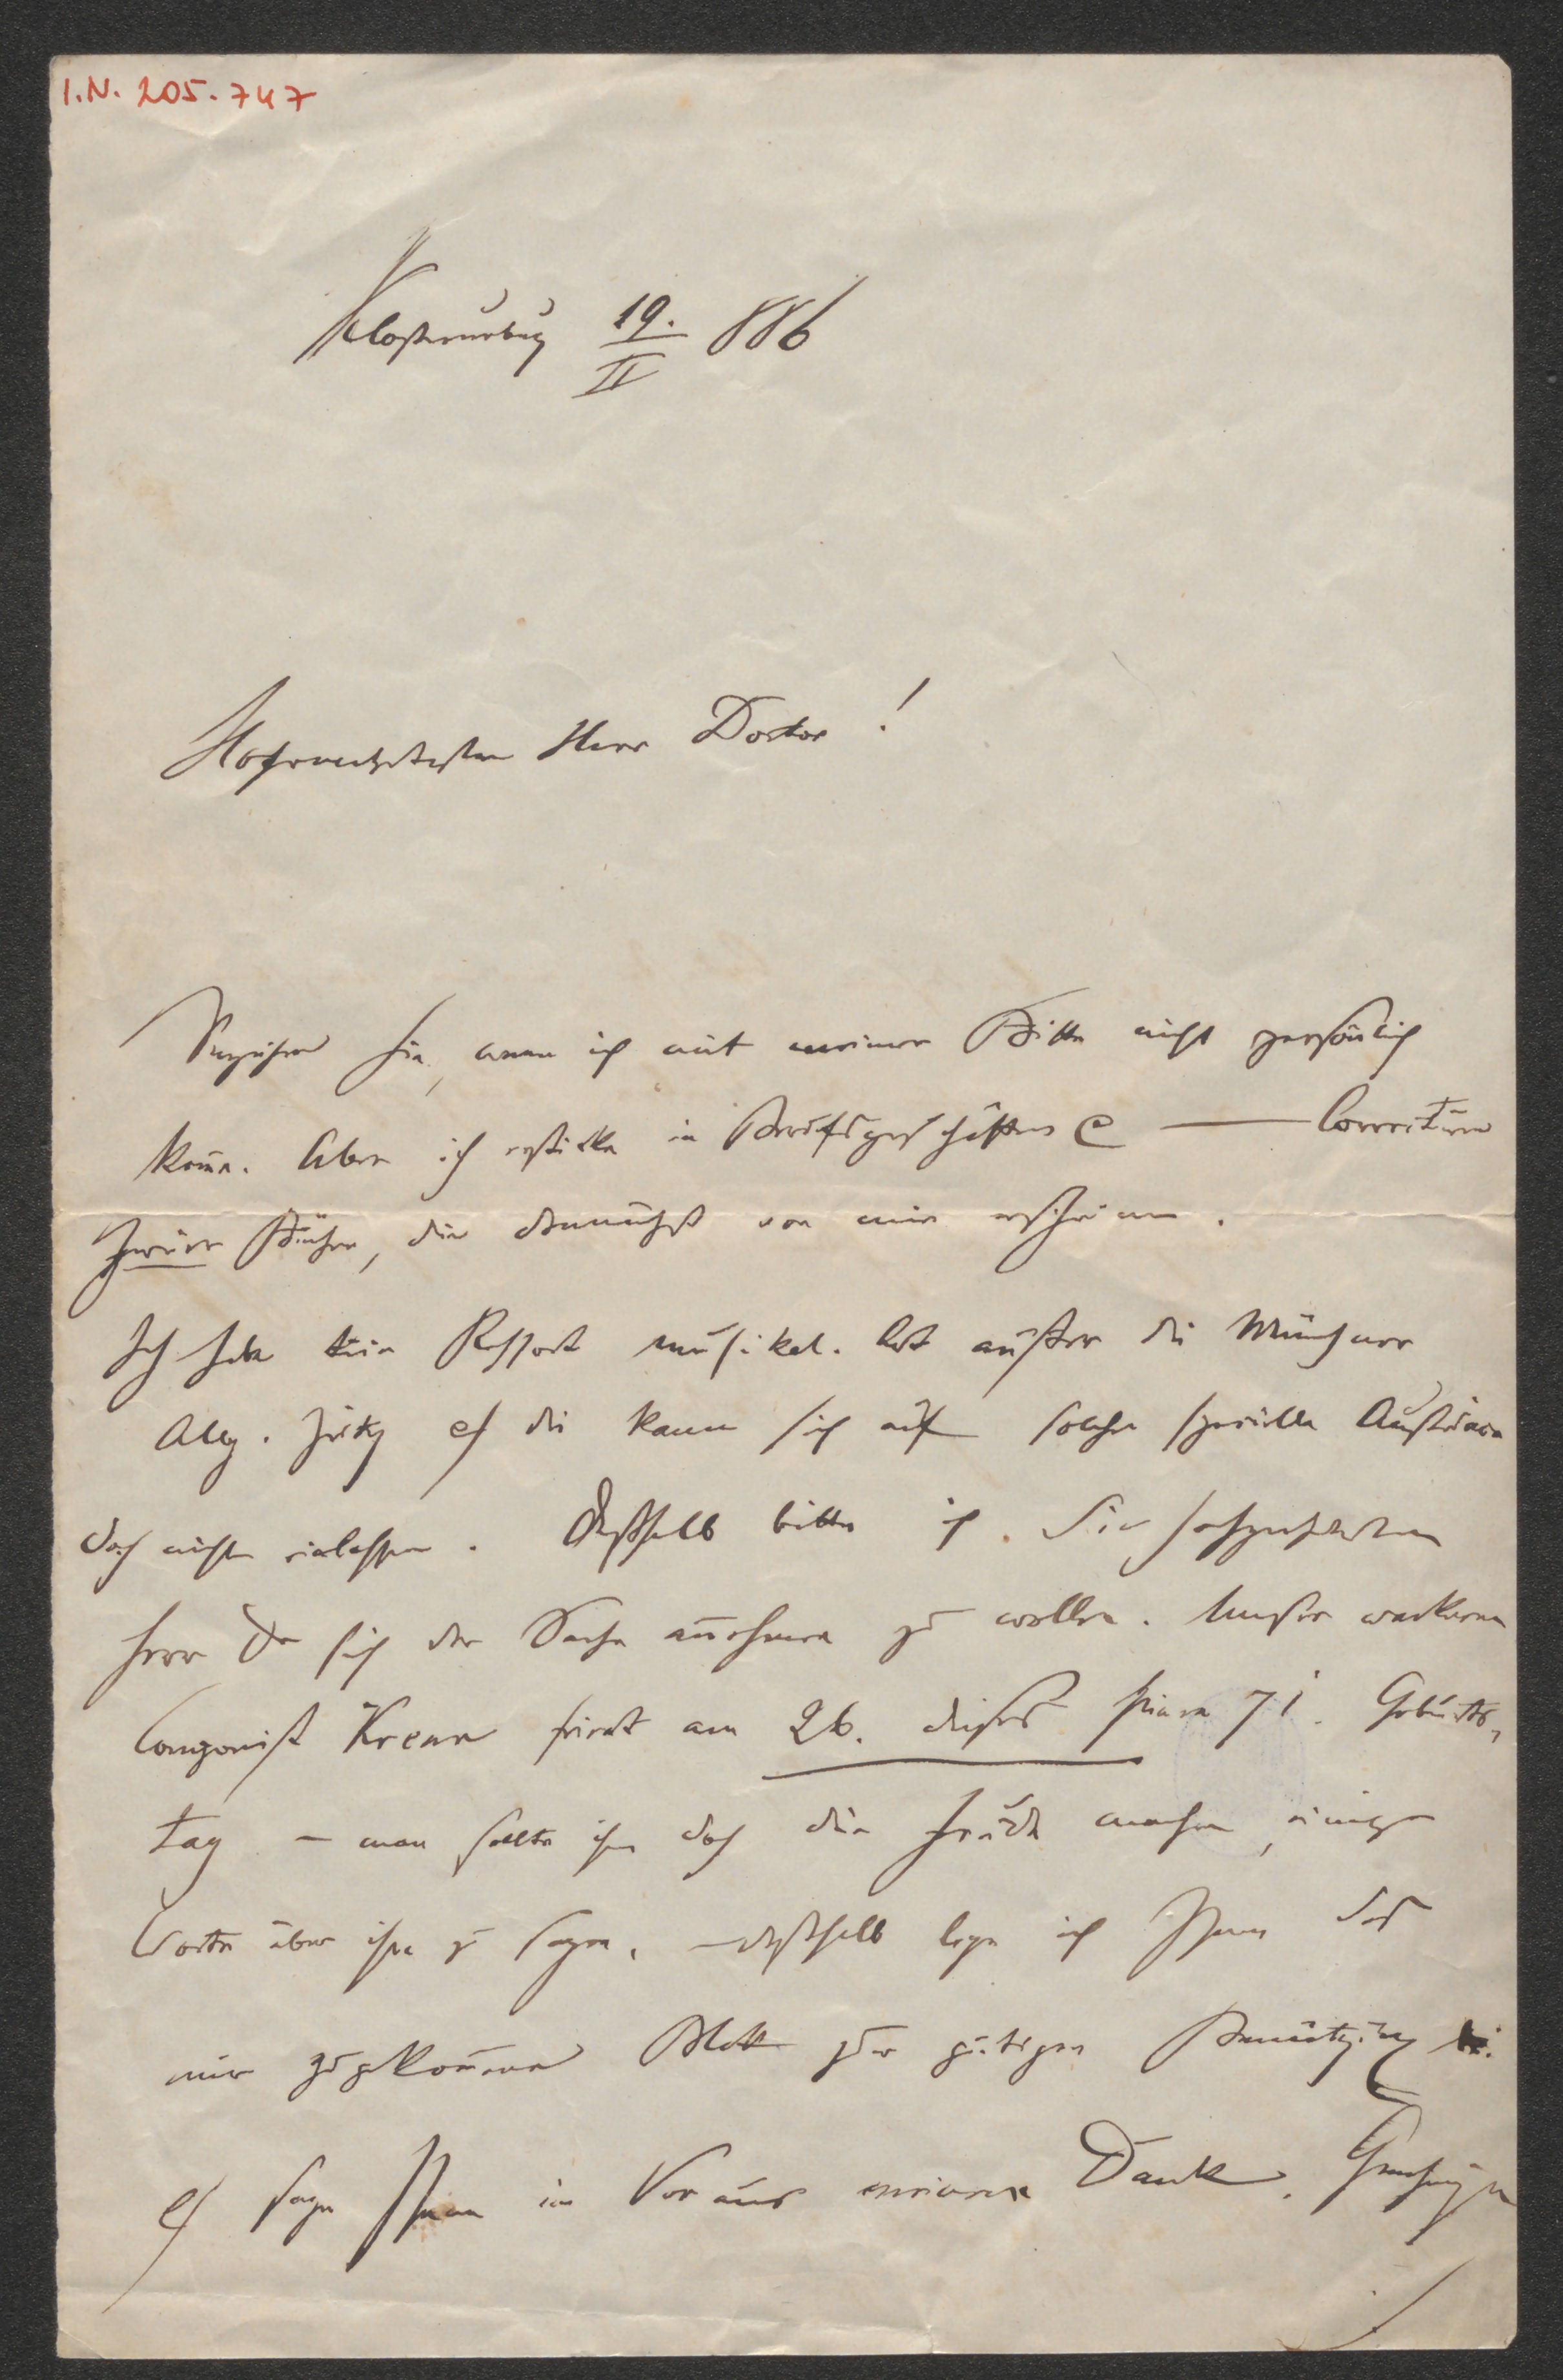 I.N. 205.747
Klosterneubug 19./II 886
Hochverehrtester Herr Doctor!
Verzeihen Sie, wenn ich mit meiner Bitte nicht persönlich
kom̅e. Aber ich ersticke in Berufsgeschäften & — Correcturen
zweier Bücher, die demnächst von mir erscheinen.
Ich habe kein Ressort musikal. Art außer die Münchner
Allg. Zeitg & die kann sich auf solche specielle Austriaca
doch nicht einlassen. Deßhalb bitte ich Sie hochgeehrtester
Herr Dr sich der Sache an̅ehmen zu wollen. Unser wackerer
Componist Krenn feiert am 26. dieses seinen 71. Geburts-
tag – man sollte ihm doch die Freude machen, einige
Worte über ihn zu sagen, – deßhalb lege ich Ihnen das
mir zugekom̅ene Blatt zur gütigen Benützung bei
& sage Ihnen im Voraus meinen Dank. Genehmigen